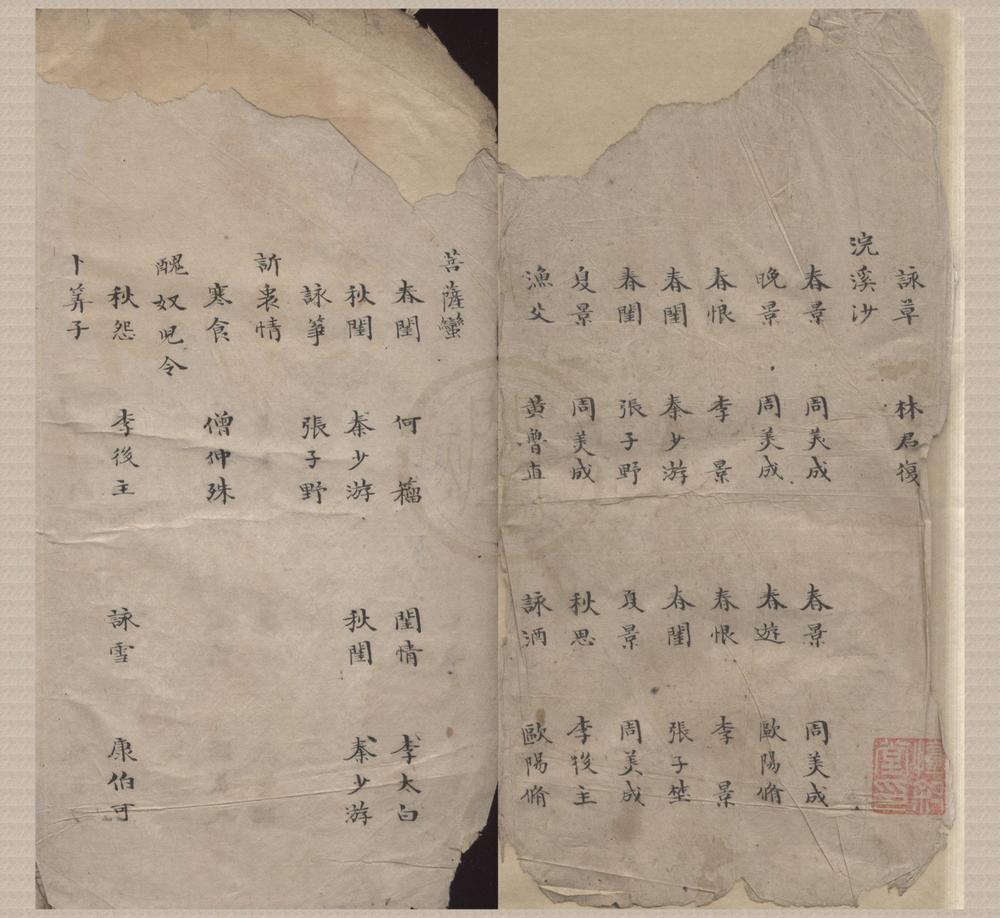 詠草 林君復
浣溪沙
春景 周美成 春景 周美成
晚景 周美成 春遊 歐陽脩
春恨 李景 春恨 李景
春閨 秦少游 春閨 張子埜
春閨 張子野 夏景 周美成
夏景 周美成 秋思 李後主
漁父 黃魯直 詠酒 歐陽脩
菩薩蠻
春閨 何籕 閨情 李太白
秋閨 秦少游 秋閨 秦少游
詠箏 張子野
訴衷情
寒食 僧仲殊
醜奴兒令
秋怨 李後主 詠雪 康伯可
卜筭子